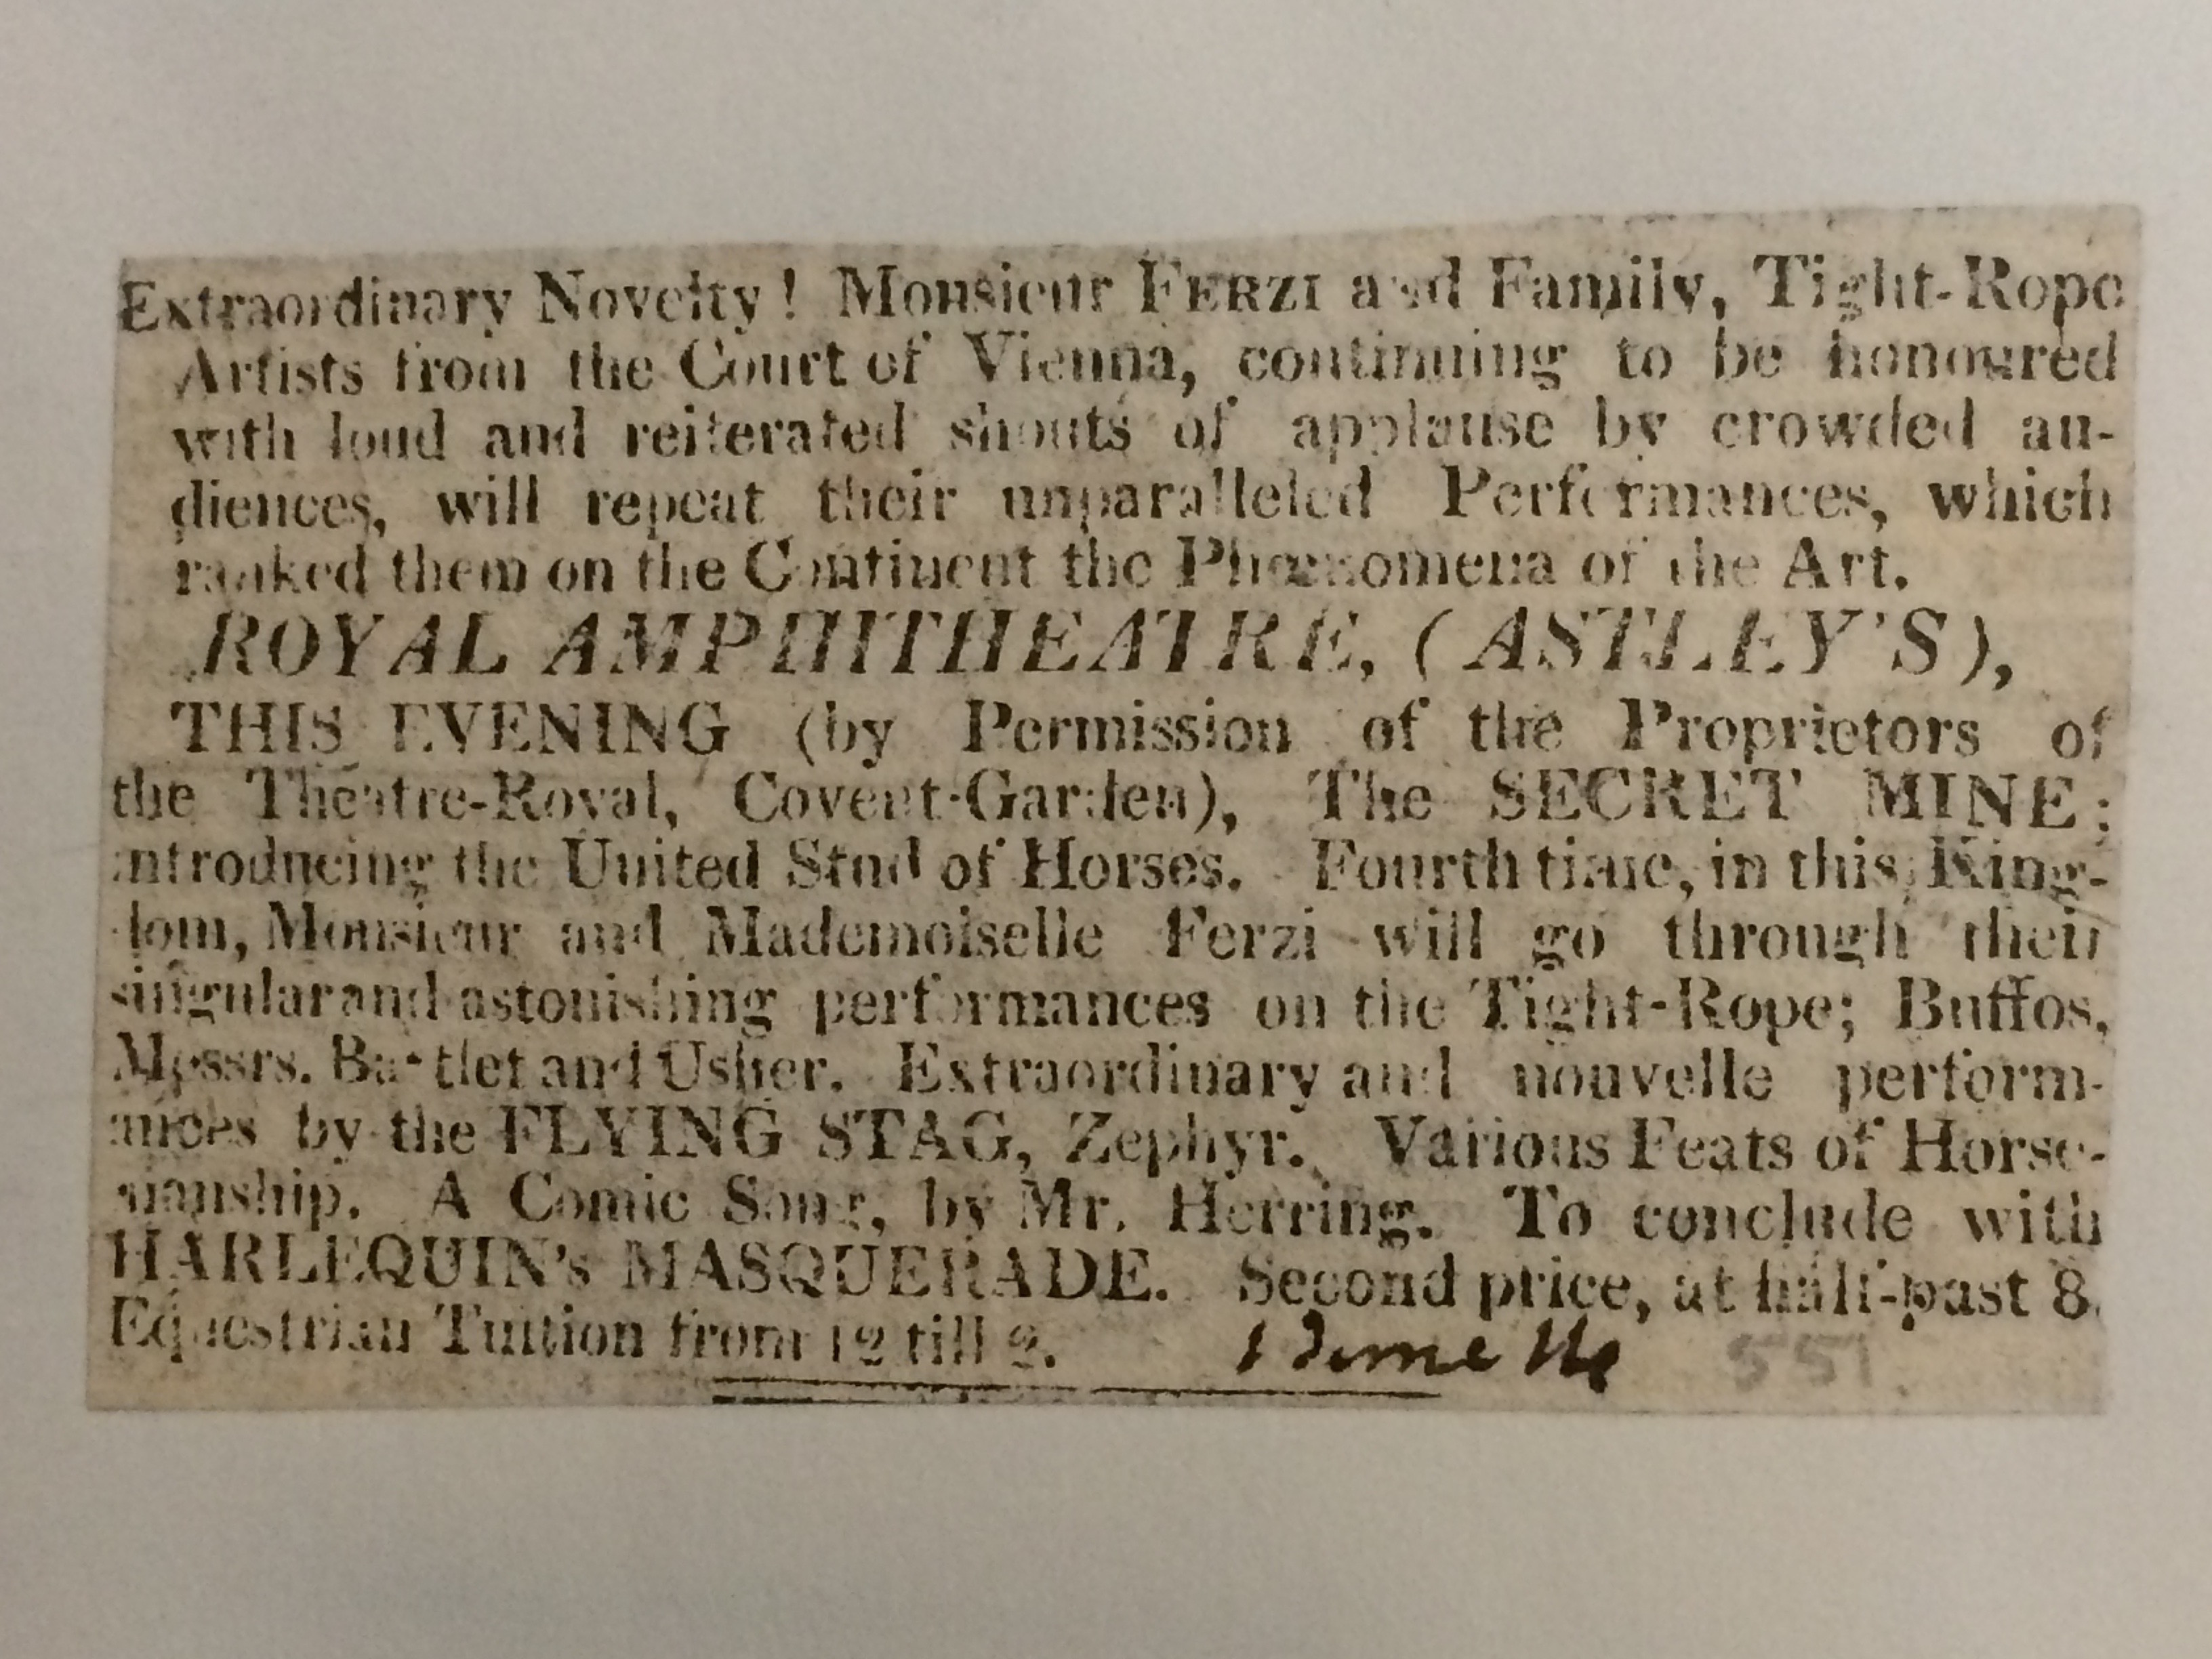 Extraordinary Novelty! Monsieur FERZI and Family, Tight-Rope
Artists from the Court of Vienna, continuing to be honoured
with loud and reiterated shouts of applause by crowded au-
diences, will repeat their unparalleled Performances, which
ranked them on the Continent the Phœnomena of the Art.
ROYAL AMPHITHEATRE, (ASTLEY'S),
THIS EVENING (by Permission of the Proprietors of
the Theatre-Royal, Covent-Garden), The SECRET MINE;
introducing the United Stud of Horses. Fourth time, in this King-
dom, Monsieur and Mademoiselle Ferzi will go through their
singular and astonishing performances on the Tight-Rope; Buffos,
Messrs. Bartlet and Usher. Extraordinary and nouvelle perform-
ances by the FLYING STAG, Zephyr. Various Feats of Horse-
manship. A Comic Song, by Mr. Herring. To conclude with
HARLEQUIN's MASQUERADE. Second price, at half-past 8.
Equestrian Tuition from 12 till 2. 551